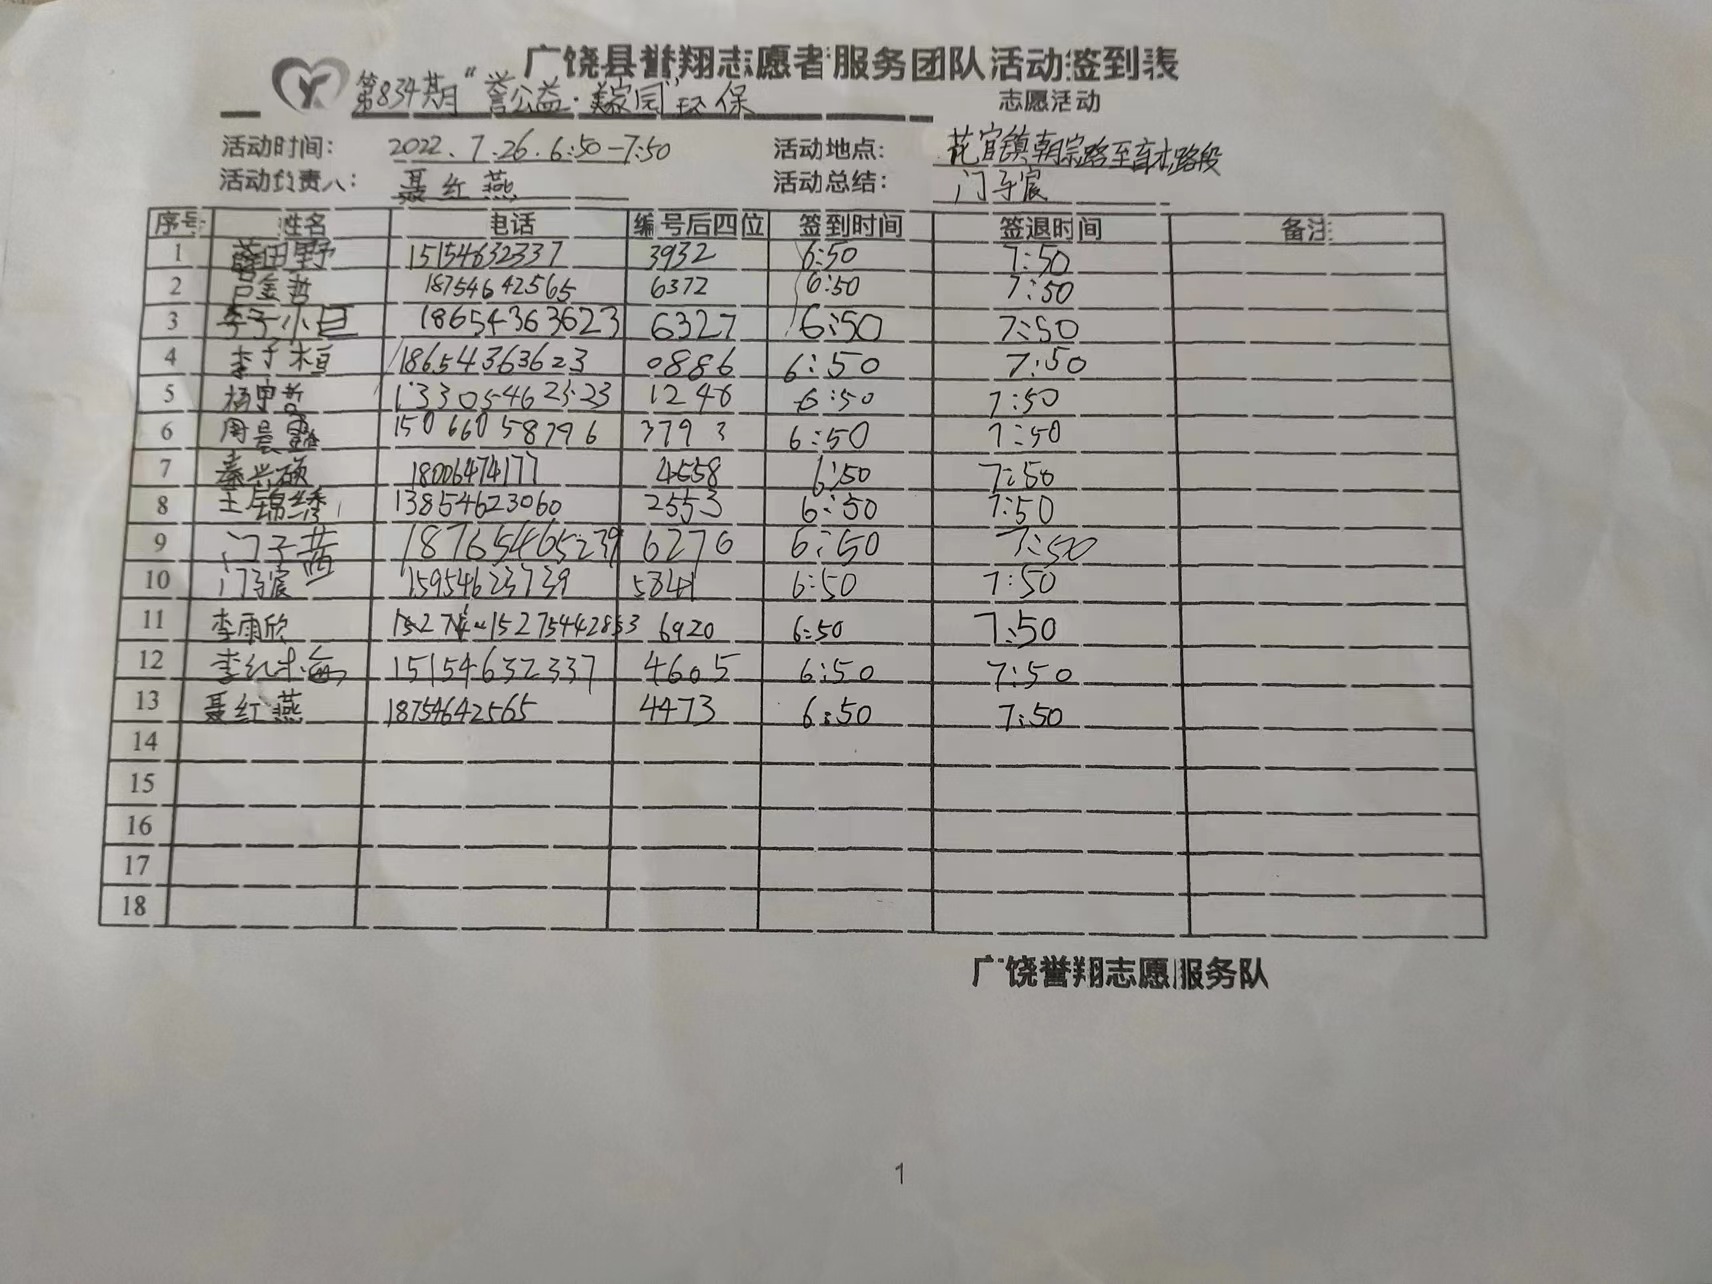 广饶县誉翔志愿者服务团队活动签到表
第834期“誉公益·美家园”环保 志愿活动
活动时间: 2022.7.26.6:50-7:50 活动地点: 花官镇朝宗路至育才路段
活动负责人: 聂红燕 活动总结: 门子宸
序号 姓名 电话 编号后四位 签到时间 签退时间 备注
1 薛田野 15154632337 3932 6:50 7:50
2 吕金哲 18754642565 6372 6:50 7:50
3 李子小 18654363623 6327 6:50 7:50
4 李子桓 18654363623 0886 6:50 7:50
5 杨 13305462323 1246 6:50 7:50
6 周晨鑫 15066058796 3793 6:50 7:50
7 秦兴硕 18006474177 4558 6:50 7:50
8 王锦绣 13854623060 2553 6:50 7:50
9 门子茜 18765465239 6276 6:50 7:50
10 门子宸 15954623739 5841 6:50 7:50
11 李雨欣 15275442853 6920 6:50 7:50
12 李红梅 15154632337 4605 6:50 7:50
13 聂红燕 18754642565 4473 6:50 7:50
14
15
16
17
18
广饶誉翔志愿服务队
1